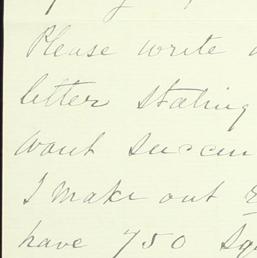 Please write
letter stating
want
I make out
have 750 Sq